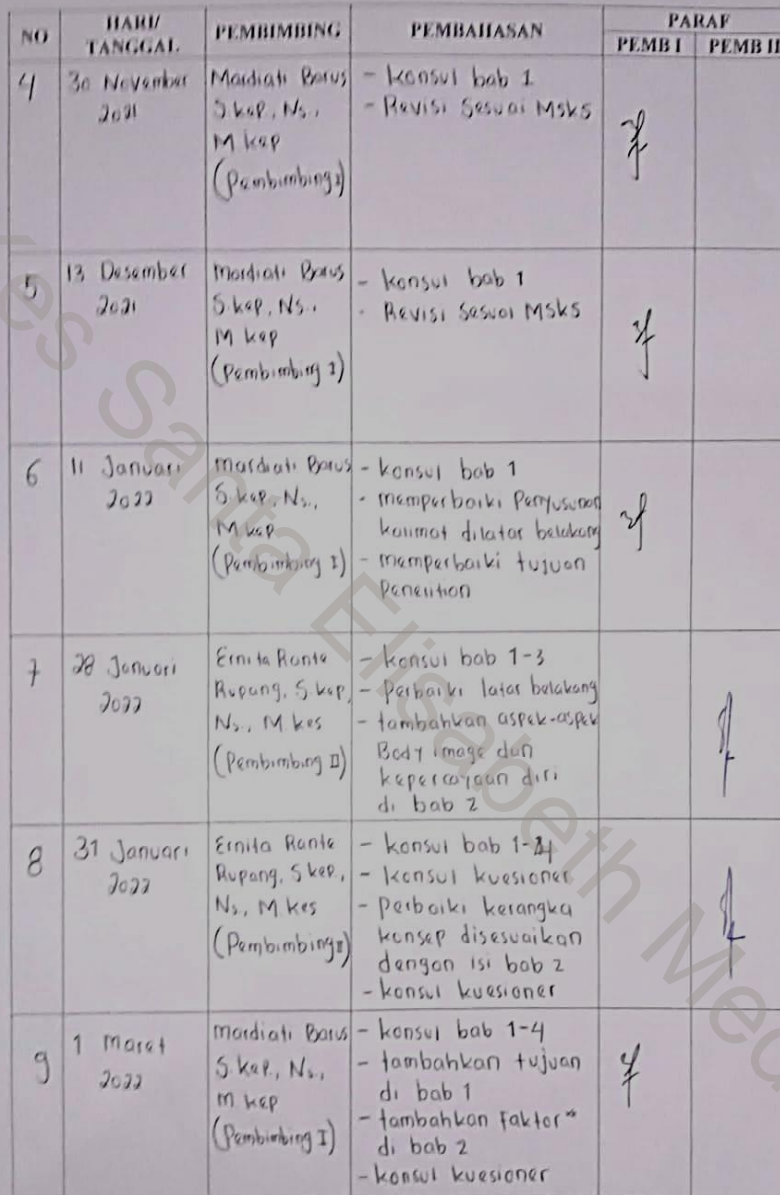 NO HARI/ TANGGAL PEMBIMBING PEMBAHASAN PARAF
PEMB I PEMB II
4 30 November 2021
Mardiati Barus
S.kep, Ns.,
M kep
(Pembimbing I)
- konsul bab 1
- Revisi Sesuai MSKS
5 13 Desember 2021
Mardiati Barus
S.kep, Ns.,
M kep
(Pembimbing I)
- konsul bab 1
- Revisi Sesuai MSKS
6 11 Januari 2022
Mardiati Barus
S.kep, Ns.,
M kep
(Pembimbing I)
- konsul bab 1
- memperbaiki Penyusunan
kalimat dilatar belakang
- memperbaiki tujuan
Penelitian
7 28 Januari 2022
Ernita Rante
Rupang, S.kep,
Ns., M kes
(Pembimbing II)
- konsul bab 1-3
- Perbaiki latar belakang
- tambahkan aspek-aspek
Body image dan
kepercayaan diri
di bab 2
8 31 Januari 2022
Ernita Rante
Rupang, S kep,
Ns, M kes
(Pembimbing II)
- konsul bab 1-4
- Konsul kuesioner
- Perbaiki kerangka
konsep disesuaikan
dengan isi bab 2
- konsul kuesioner
9 1 Maret 2022
Mardiati Barus
S kep, Ns.,
M kep
(Pembimbing I)
- konsul bab 1-4
- tambahkan tujuan
di bab 1
- tambahkan Faktor"
di bab 2
- konsul kuesioner
kes Santa Elisabeth Med